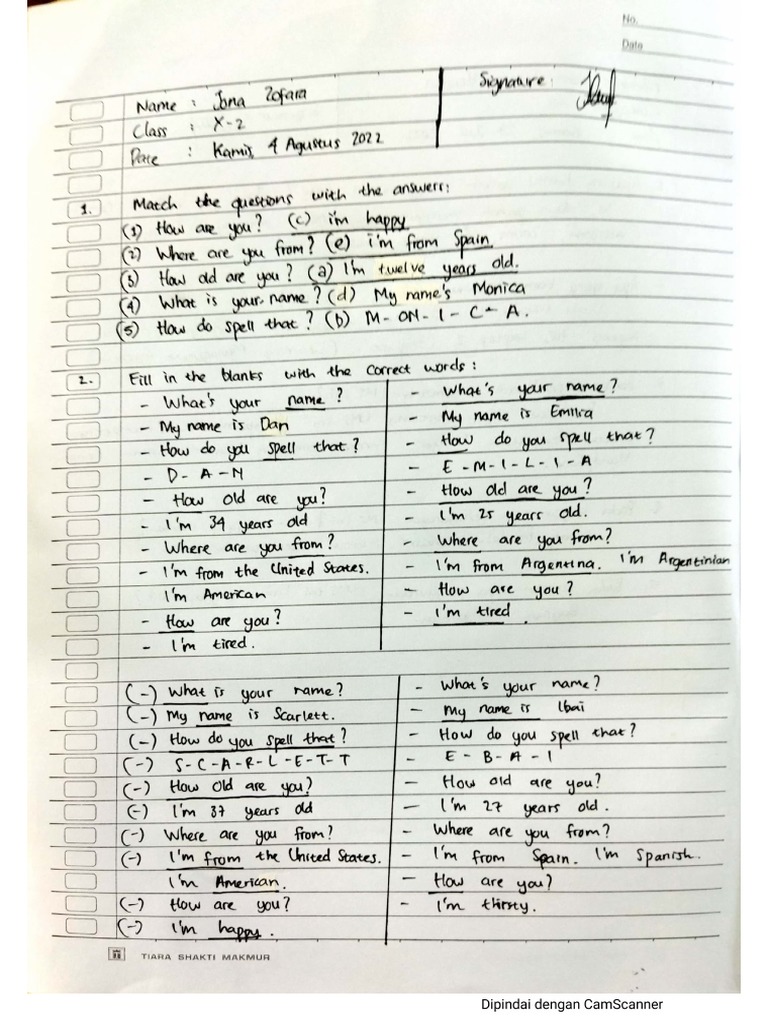 No.
Date
Signature:
Name : Jona Zofara
Class : X-2
Date : Kamis, 4 Agustus 2022
1. Match the questions with the answers:
(1) How are you? (c) i'm happy
(2) Where are you from? (e) i'm from Spain
(3) How old are you? (a) I'm twelve years old.
(4) What is your name? (d) My name's Monica
(5) How do spell that? (b) M-ON-I-C-A.
2. Fill in the blanks with the correct words:
- What's your name?
- My name is Dan
- How do you spell that?
- D-A-N
- How old are you?
- I'm 34 years old
- Where are you from?
- I'm from the United States.
I'm American
- How are you?
- I'm tired.
- What's your name?
- My name is Emilia
- How do you spell that?
- E-M-I-L-I-A
- How old are you?
- I'm 25 years old.
- Where are you from?
- I'm from Argentina. I'm Argentinian
- How are you?
- I'm tired.
(-) What is your name?
(-) My name is Scarlett.
(-) How do you spell that?
(-) S-C-A-R-L-E-T-T
(-) How old are you?
(-) I'm 37 years old
(-) Where are you from?
(-) I'm from the United States.
I'm American.
(-) How are you?
(-) I'm happy.
- What's your name?
- My name is Ibai
- How do you spell that?
- E-B-A-I
- How old are you?
- I'm 27 years old.
- Where are you from?
- I'm from Spain. I'm Spanish.
- How are you?
- I'm thirsty.
TIARA SHAKTI MAKMUR
Dipindai dengan CamScanner